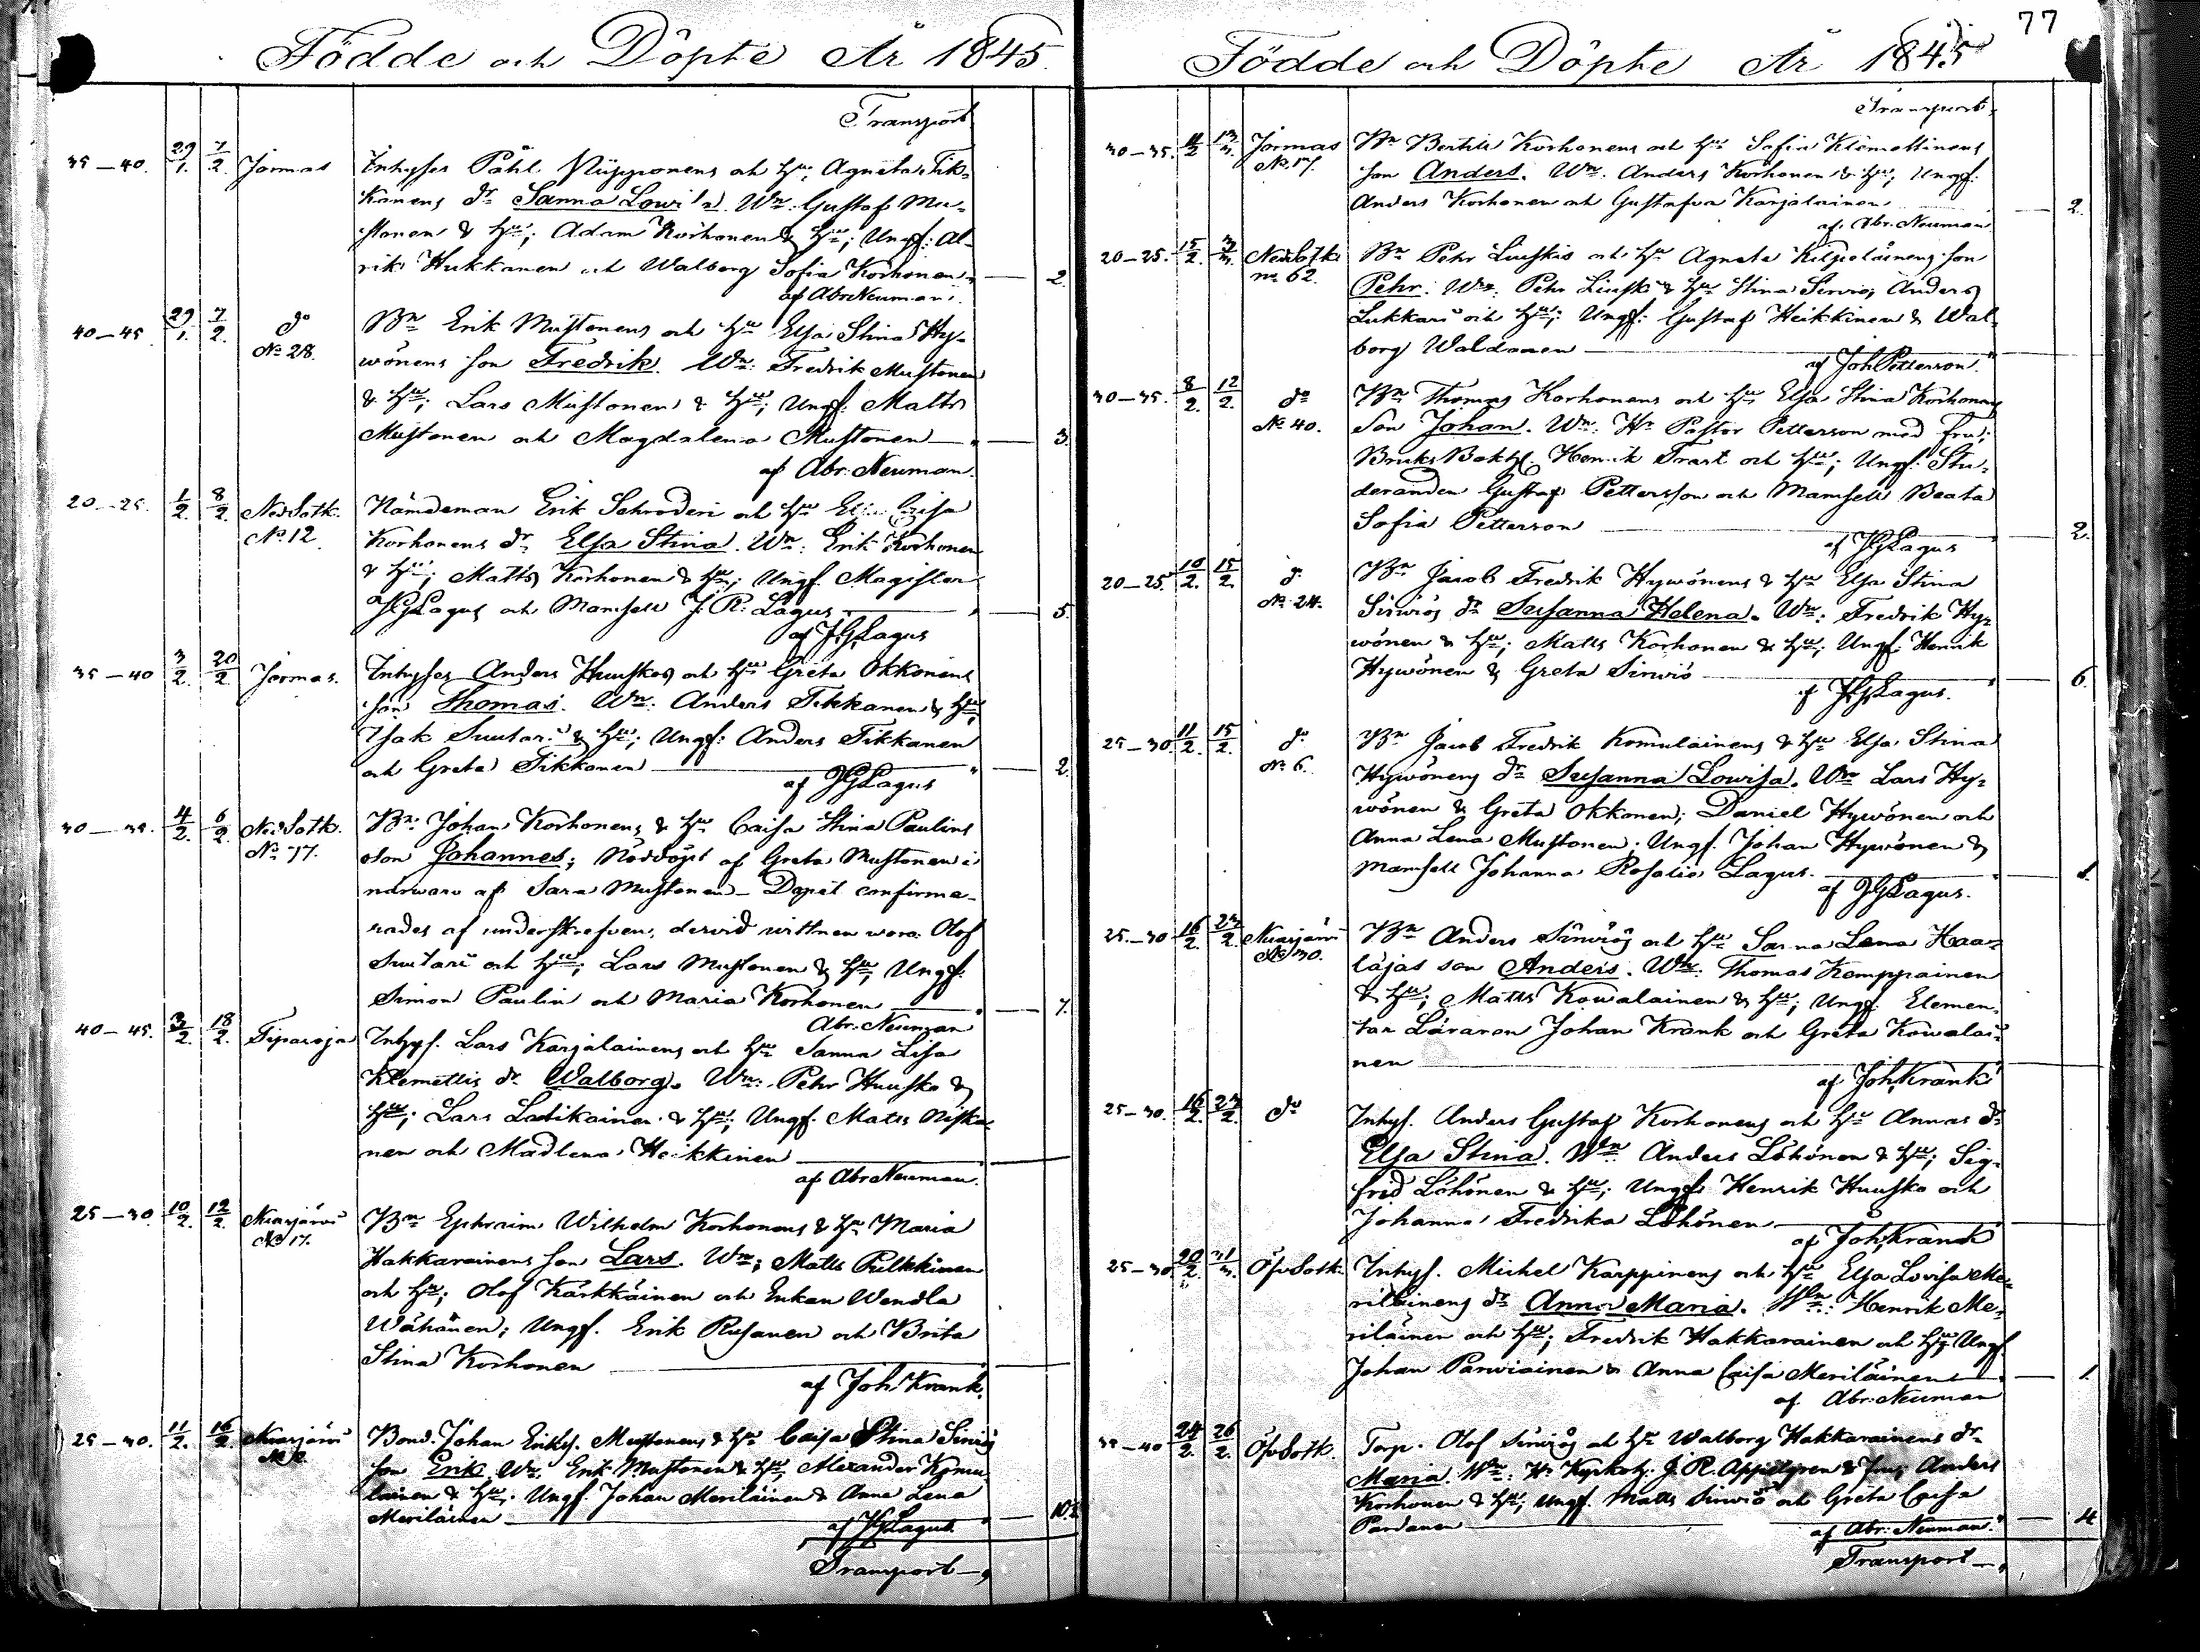 Födde och Döpte År 1845.
Transport
35–40. 29/1. 7/2. Jormas Inhyses Påhl Piipponens och hu Agneta Tik-
kanens dr Sanna Lowisa. Wn: Gustaf Mu-
stonen & hu; Adam Korhonen & hu; Ungf: Al-
rik Hukkanen och Walborg Sofia Korhonen 2.
af Abr Neuman.
40–45. 29/1. 7/2. do Bn Erik Mustonens och hu Elsa Stina Hy-
No 28. wönens son Fredrik. Wn: Fredrik Mustonen
& hu; Lars Mustonen & hu; Ungf. Matts
Mustonen och Magdalena Mustonen 3.
af Abr. Neuman.
20–25. 1/2. 8/2. Ned Sotk. Nämdeman Erik Schroderi och hu Caisa
No 12. Korhonens dr Elsa Stina. Wn: Erik Korhonen
& hu; Matts Korhonen & hu; Ungf. Magister
JGLagus och Mamsell J. R. Lagus 5.
af JGLagus
35–40 3/2. 20/2 Jormas. Inhyses Anders Huuskos och hu Greta Okkonens
son Thomas. Wn: Anders Tikkanen & hu;
Isak Suutari & hu; Ungf: Anders Tikkanen
och Greta Tikkanen 2.
af JGLagus
30–35. 4/2. 6/2 Ned Sotk. Bn: Johan Korhonens & hu Caisa Stina Paulins
No 77. son Johannes; Nöddöpt af Greta Mustonen i
närwaro af Sara Mustonen – Dopet confirme-
rades af underskrefven, derwid wittnen woro: Olof
Suutari och hu; Lars Mustonen & hu; Ungf:
Simon Paulin och Maria Korhonen 7.
Abr. Neuman
40–45. 3/2. 18/2. Tiparoja Inhys. Lars Karjalainens och hu Sanna Lisa
Klemettis dr Walborg. Wn: Pehr Huusko &
hu; Lars Ladikainen & hu; Ungf. Matts Niska-
nen och Madlena Heikkinen
af Abr Neuman.
25–30 10/2. 12/2. Nuasjärvi Bn Ephraim Wilhelm Korhonens & hu Maria
No 17. Hakkarainens son Lars. Wn; Matts Pulkkinen
och hu; Olof Kärkkäinen och Enkan Wendla
Wähänen; Ungf. Erik Rusanen och Brita
Stina Korhonen
af Joh Krank.
25–30. 11/2. 16/2. Nuasjärvi Bond. Johan Eriks. Mustonens & hu Caisa Stina Sirwiös
son Erik. Wn. Erik Mustonen & hu; Alexander Komu-
lainen & hu. Ungf. Johan Meriläinen & Anna Lena
Meriläinen
af JGLagus
Transport
77
Födde och Döpte År 1845
Transport
30–35. 11/2 Jormas Bn Bertils Korhonens och hu Sofia Klemettinens
No 17. son Anders. Wn. Anders Korhonen & hu; Ungf.
Anders Korhonen och Gustafva Karjalainen 2.
af Abr. Neuman
20–25. 15/2. Ned Sotk. Bn Pehr Liuskis och hu Agneta Kilpeläinens son
no 62. Pehr. Wn: Pehr Liuski & hu Stina Sirwiö; Anders
Lukkari och hu; Ungf: Gustaf Heikkinen & Wal-
borg Waldanen
af Joh Petterson.
30–35. 8/2. 12/2. do Bn Thomas Korhonens och hu Elsa Stina Korhonens
No 40. Son Johan. Wn. Hr Pastor Petterson med fru;
Bruks Bokh. Henrik Trast och hu; Ungf. Stu-
deranden Gustaf Petterson och Mamsell Beata
Sofia Petterson 2.
af JGLagus
20–25. 10/2. 15/2. do Bn Jacob Fredrik Hywönens & hu Elsa Stina
No 24. Sirwiös dr Susanna Helena. Wn: Fredrik Hy-
wönen & hu; Matts Korhonen & hu; Ungf. Henrik
Hywönen & Greta Sirwiö 6.
af JGLagus.
25–30 11/2. 15/2. do Bn Jacob Fredrik Komulainens & hu Elsa Stina
No 6. Hywönens dr Susanna Lowisa. Wn Lars Hy-
wönen & Greta Okkonen; Daniel Hywönen och
Anna Lena Mustonen; Ungf. Johan Hywönen &
Mamsell Johanna Rosalia Lagus.
af JGLagus.
25–30 16/2. 23/2. Nuasjärvi Bn Anders Sirwiös och hu Sanna Lena Haa-
No 30. lajas son Anders. Wn: Thomas Kemppainen
& hu; Matts Kowalainen & hu; Ungf. Elemen-
tar Läraren Johan Krank och Greta Kowalai-
nen
af Joh. Krank
25–30. 16/2. 23/2. do Inhys. Anders Gustaf Korhonens och hu Annas dr
Elsa Stina. Wn Anders Löhönen & hu; Sig-
frid Löhönen & hu; Ungf. Henrik Huusko och
Johanna Fredrika Löhönen
af Joh. Krank
25–30 20/2. Öfv Sotk. Inhys. Michel Karppinens och hu Elsa Lovisa Me-
riläinens dr Anna Maria. Wn: Henrik Me-
riläinen och hu; Fredrik Hakkarainen och hu; Ungf
Johan Parwiainen & Anna Caisa Meriläinen 1.
af Abr. Neuman
35–40 24/2. 26/2. Öfv Sotk. Torp. Olof Sirwiös och hu Walborg Hakkarainens dr
Maria. Wn: Hr Kyrkoh. J. R. Appelgren & fru; Anders
Korhonen & hu; Ungf. Matts Sirwiö och Greta Caisa
Pardanen 4
af Abr. Neuman.
Transport